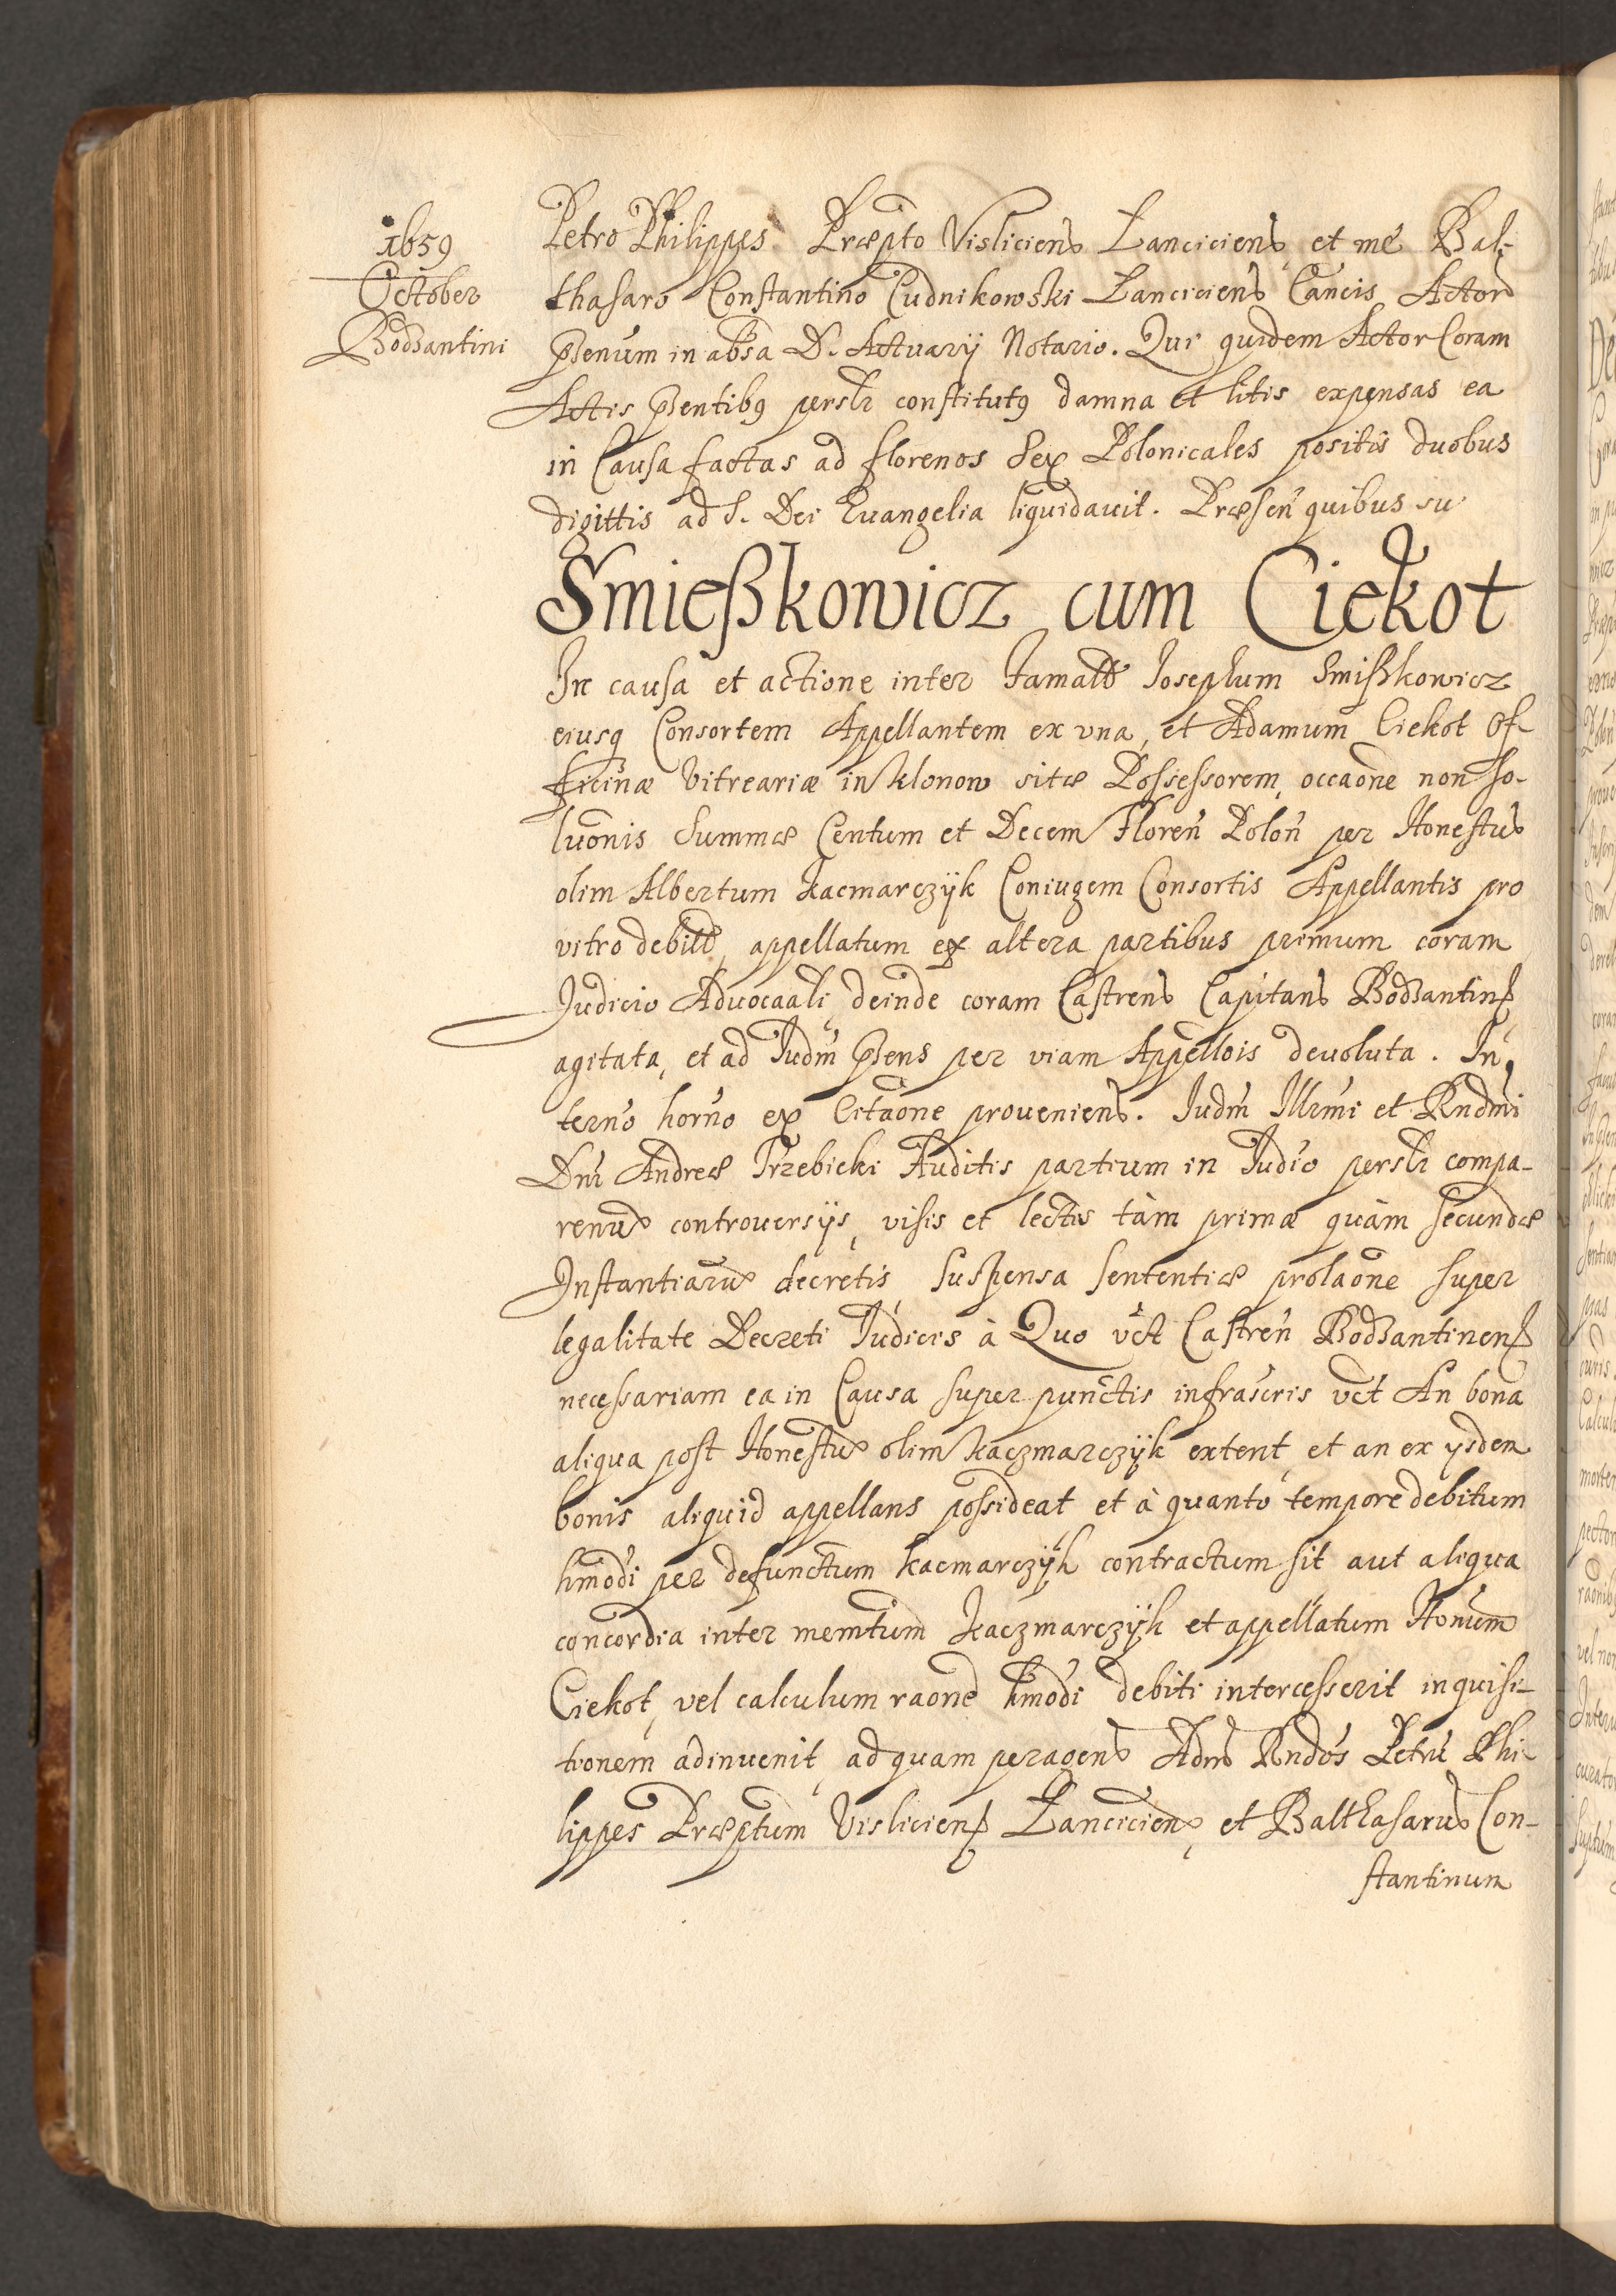 1659
October
Bodzantini
Petro Philippes Præpto Visliciens Lanciciens et me Bal-
thasaro Constantino Cudnikowski Lanciciens Cancis Actor
pñenum in absa D. Actuarij Notario. Qui quidem Actor Coram
Actis pñentibq persłr constitutq damna et litis expensas ea
in Causa factas ad florenos Sex Polonicales positis duobus
digittis ad S. Dei Euangelia liquidauit. Præsen quibus su
Smießkowicz cum Ciekot
In causa et actione inter Famatt Iosephum Smißkowicz
eiusq Consortem Appellantem ex vna, et Adamum Ciekot Of-
ficinæ Vitreariæ in Klonow sitæ Possessorem, occaone non so-
luonis Summæ Centum et Decem Floren Polon per Honestus
olim Albertum Kacmarczÿk Coniugem Consortis Appellantis pro
vitro debitt, appellatum ex altera partibus primum coram
Judicio Aduocaali, deinde coram Castrens Capitans Bodzantinß
agitata, et ad Judm pñens per viam Appellois devoluta. In
terno horno ex Citaone proueniens. Iudm Illrmi et Rndmi
Dni Andreæ Trzebicki Auditis partium in Judio persłr compa-
renux controuersijs, visis et lectis tàm primæ quàm secundæ
Instantiarux decretis, suspensa sententiæ prolaone super
legalitate Decreti Judicis à Quo vct Castren Bodzantinenß
necessariam ea in Causa super punctis infrascris vct An bona
aliqua post Honestux olim Kaczmarczÿk extent, et an ex ysdem
bonis aliquid appellans possideat et à quanto tempore debitum
hmodi per defunctum Kacmarczÿk contractum sit aut aliqua
concordia inter memtum Kaczmarczÿk et appellatum Honum
Ciekot, vel calculum raone hmodi debiti intercesserit inquisi-
tionem adinuenit, ad quam peragens Adm Rndos Petru Phi-
lippes Præptum Vislicienß Lanciciens, et Balthasarus Con-
stantinum